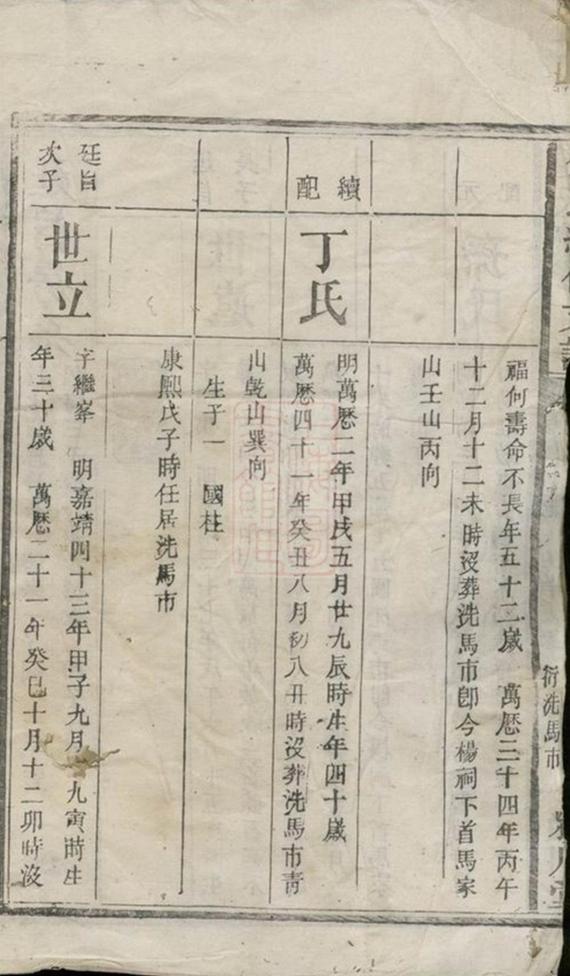 衍洗馬市
福何壽命不長年五十二歲 萬曆三十四年丙午
十二月十二未時沒葬洗馬市卽今楊祠下首馬家
山壬山丙向
續
配
丁氏
明萬曆二年甲戌五月廿九辰時生年四十歲
萬曆四十一年癸丑八月初八丑時沒葬洗馬市青
山乾山巽向
生子一 國柱
康熙戊子時任居洗馬市
廷旨
次子
世立
字繼峯 明嘉靖四十三年甲子九月 九寅時生
年三十歲 萬曆二十一年癸巳十月十二卯時沒